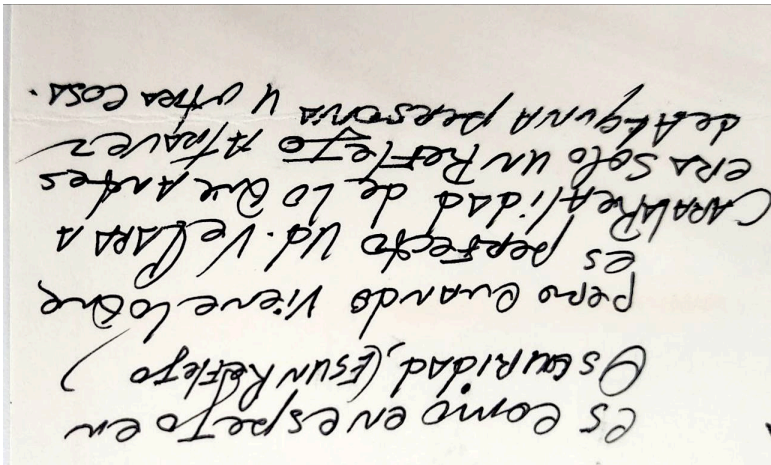 es como en espeJo en
OscuRidad, (Es un ReflejO)
pero cuando viene lo Que
es perfecto Ud. Ve CARA A
CARA LA ReAlidad de Lo Que Antes
eRA Solo un ReFleJo A trAvez
de AlgunA persona u otrA cosA.